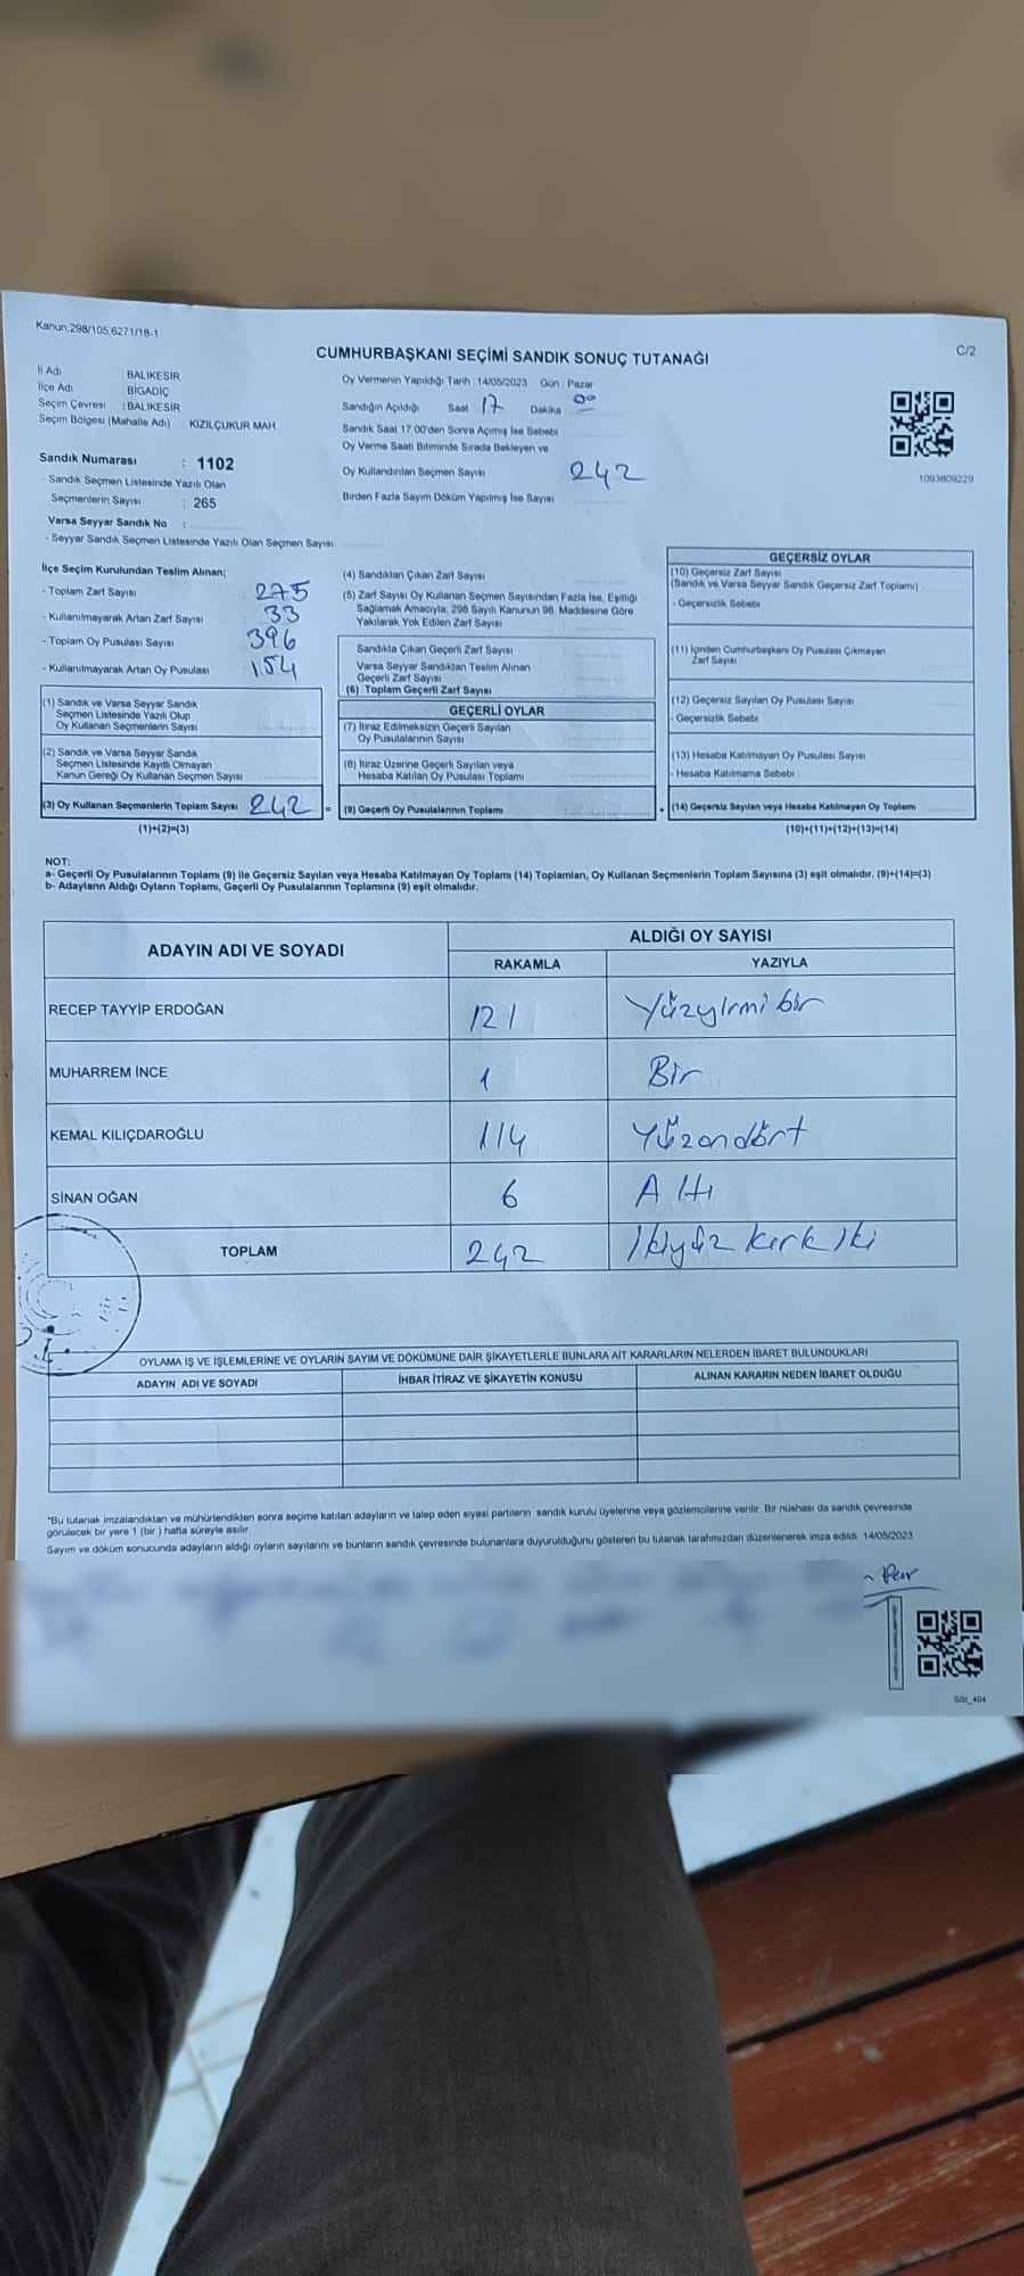 Kanun:298/105,6271/18-1
C/2
CUMHURBAŞKANI SEÇİMİ SANDIK SONUÇ TUTANAĞI
İl Adı BALIKESİR
İlçe Adı BİGADİÇ
Seçim Çevresi : BALIKESİR
Seçim Bölgesi (Mahalle Adı) KIZILÇUKUR MAH.
Oy Vermenin Yapıldığı Tarih 14/05/2023 Gün : Pazar
Sandığın Açıldığı Saat 17 Dakika 00
Sandık Saat 17.00'den Sonra Açımış İse Sebebi
Oy Verme Saati Bitiminde Sırada Bekleyen ve
Oy Kullandırılan Seçmen Sayısı 242
Birden Fazla Sayım Döküm Yapılmış İse Sayısı
1093809229
Sandık Numarası : 1102
- Sandık Seçmen Listesinde Yazılı Olan
Seçmenlerin Sayısı : 265
Varsa Seyyar Sandık No :
- Seyyar Sandık Seçmen Listesinde Yazılı Olan Seçmen Sayısı
İlçe Seçim Kurulundan Teslim Alınan;
- Toplam Zarf Sayısı 275
- Kullanılmayarak Artan Zarf Sayısı 33
- Toplam Oy Pusulası Sayısı 396
- Kullanılmayarak Artan Oy Pusulası 154
(1) Sandık ve Varsa Seyyar Sandık
Seçmen Listesinde Yazılı Olup
Oy Kullanan Seçmenlerin Sayısı
(2) Sandık ve Varsa Seyyar Sandık
Seçmen Listesinde Kayıtlı Olmayan
Kanun Gereği Oy Kullanan Seçmen Sayısı
(3) Oy Kullanan Seçmenlerin Toplam Sayısı 242 =
(1)+(2)=(3)
(4) Sandıktan Çıkan Zarf Sayısı
(5) Zarf Sayısı Oy Kullanan Seçmen Sayısından Fazla İse, Eşitliği
Sağlamak Amacıyla, 298 Sayılı Kanunun 98. Maddesine Göre
Yakılarak Yok Edilen Zarf Sayısı
Sandıkta Çıkan Geçerli Zarf Sayısı
Varsa Seyyar Sandıktan Teslim Alınan
Geçerli Zarf Sayısı
(6) Toplam Geçerli Zarf Sayısı
GEÇERLİ OYLAR
(7) İtiraz Edilmeksizin Geçerli Sayılan
Oy Pusulalarının Sayısı
(8) İtiraz Üzerine Geçerli Sayılan veya
Hesaba Katılan Oy Pusulası Toplamı
(9) Geçerli Oy Pusulalarının Toplamı +
GEÇERSİZ OYLAR
(10) Geçersiz Zarf Sayısı
(Sandık ve Varsa Seyyar Sandık Geçersiz Zarf Toplamı)
- Geçersizlik Sebebi
(11) İçinden Cumhurbaşkanı Oy Pusulası Çıkmayan
Zarf Sayısı
(12) Geçersiz Sayılan Oy Pusulası Sayısı
- Geçersizlik Sebebi
(13) Hesaba Katılmayan Oy Pusulası Sayısı
- Hesaba Katılmama Sebebi
(14) Geçersiz Sayılan veya Hesaba Katılmayan Oy Toplamı
(10)+(11)+(12)+(13)=(14)
NOT:
a- Geçerli Oy Pusulalarının Toplamı (9) ile Geçersiz Sayılan veya Hesaba Katılmayan Oy Toplamı (14) Toplamları, Oy Kullanan Seçmenlerin Toplam Sayısına (3) eşit olmalıdır. (9)+(14)=(3)
b- Adayların Aldığı Oyların Toplamı, Geçerli Oy Pusulalarının Toplamına (9) eşit olmalıdır.
ADAYIN ADI VE SOYADI
ALDIĞI OY SAYISI
RAKAMLA YAZIYLA
RECEP TAYYİP ERDOĞAN 121 Yüzyirmi bir
MUHARREM İNCE 1 Bir
KEMAL KILIÇDAROĞLU 114 Yüzondört
SİNAN OĞAN 6 Altı
TOPLAM 242 İkiyüz kırk iki
OYLAMA İŞ VE İŞLEMLERİNE VE OYLARIN SAYIM VE DÖKÜMÜNE DAİR ŞİKAYETLERLE BUNLARA AİT KARARLARIN NELERDEN İBARET BULUNDUKLARI
ADAYIN ADI VE SOYADI İHBAR İTİRAZ VE ŞİKAYETİN KONUSU ALINAN KARARIN NEDEN İBARET OLDUĞU
*Bu tutanak imzalandıktan ve mühürlendikten sonra seçime katılan adayların ve talep eden siyasi partilerin sandık kurulu üyelerine veya gözlemcilerine verilir. Bir nüshası da sandık çevresinde
görülecek bir yere 1 (bir) hafta süreyle asılır.
Sayım ve döküm sonucunda adayların aldığı oyların sayılarını ve bunların sandık çevresinde bulunanlara duyurulduğunu gösteren bu tutanak tarafımızdan düzenlenerek imza edildi. 14/05/2023